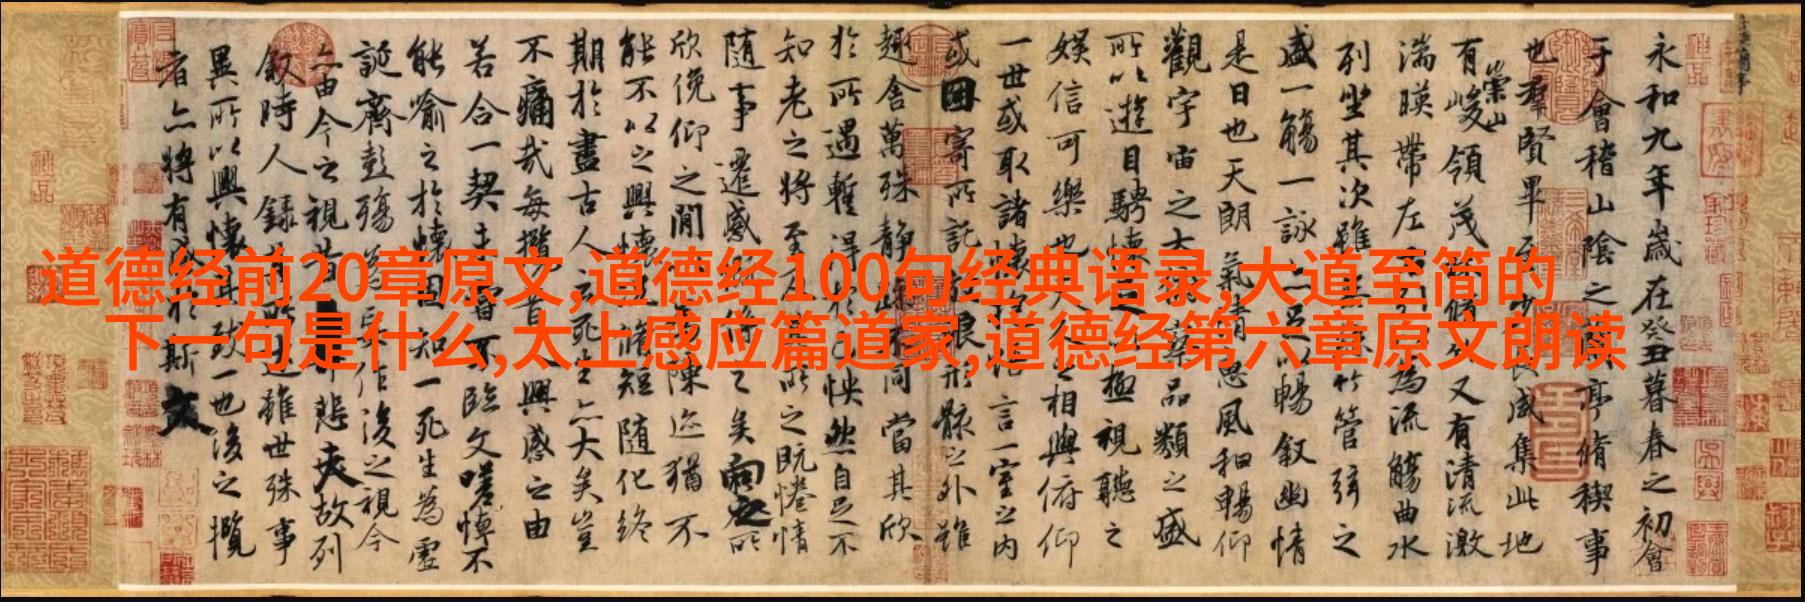 道德经前20章原文,道德经100句经典语录,大道至简的
下一句是什么,太上感应篇道家,道德经第六章原文朗读
永和九年歲在癸丑暮春之初會
于會稽山陰之蘭亭脩稧事
也羣賢畢至少長咸集此地
有崇山峻領茂林脩竹又有清流激
湍暎帶左右引以為流觴曲水
列坐其次雖無絲竹管弦之
盛一觴一詠亦足以暢叙幽情
是日也天朗氣清惠風和暢仰
觀宇宙之大俯察品類之盛
所以遊目騁懷足以極視聽之
娛信可樂也夫人之相與俯仰
一世或取諸懷抱悟言一室之內
或因寄所託放浪形骸之外雖
趣舍萬殊靜躁不同當其欣
於所遇暫得於己怏然自足不
知老之將至及其所之既惓情
隨事遷感慨係之矣向之所
欣俛仰之閒以為陳迹猶不
能不以之興懷況脩短隨化終
期於盡古人云死生亦大矣豈
不痛哉每攬昔人興感之由
若合一契未嘗不臨文嗟悼不
能喻之於懷固知一死生為虛
誕齊彭殤為妄作後之視今
亦由今之視昔悲夫故列
叙時人錄其所述雖世殊事
異所以興懷其致一也後之攬
者亦將有感於斯文